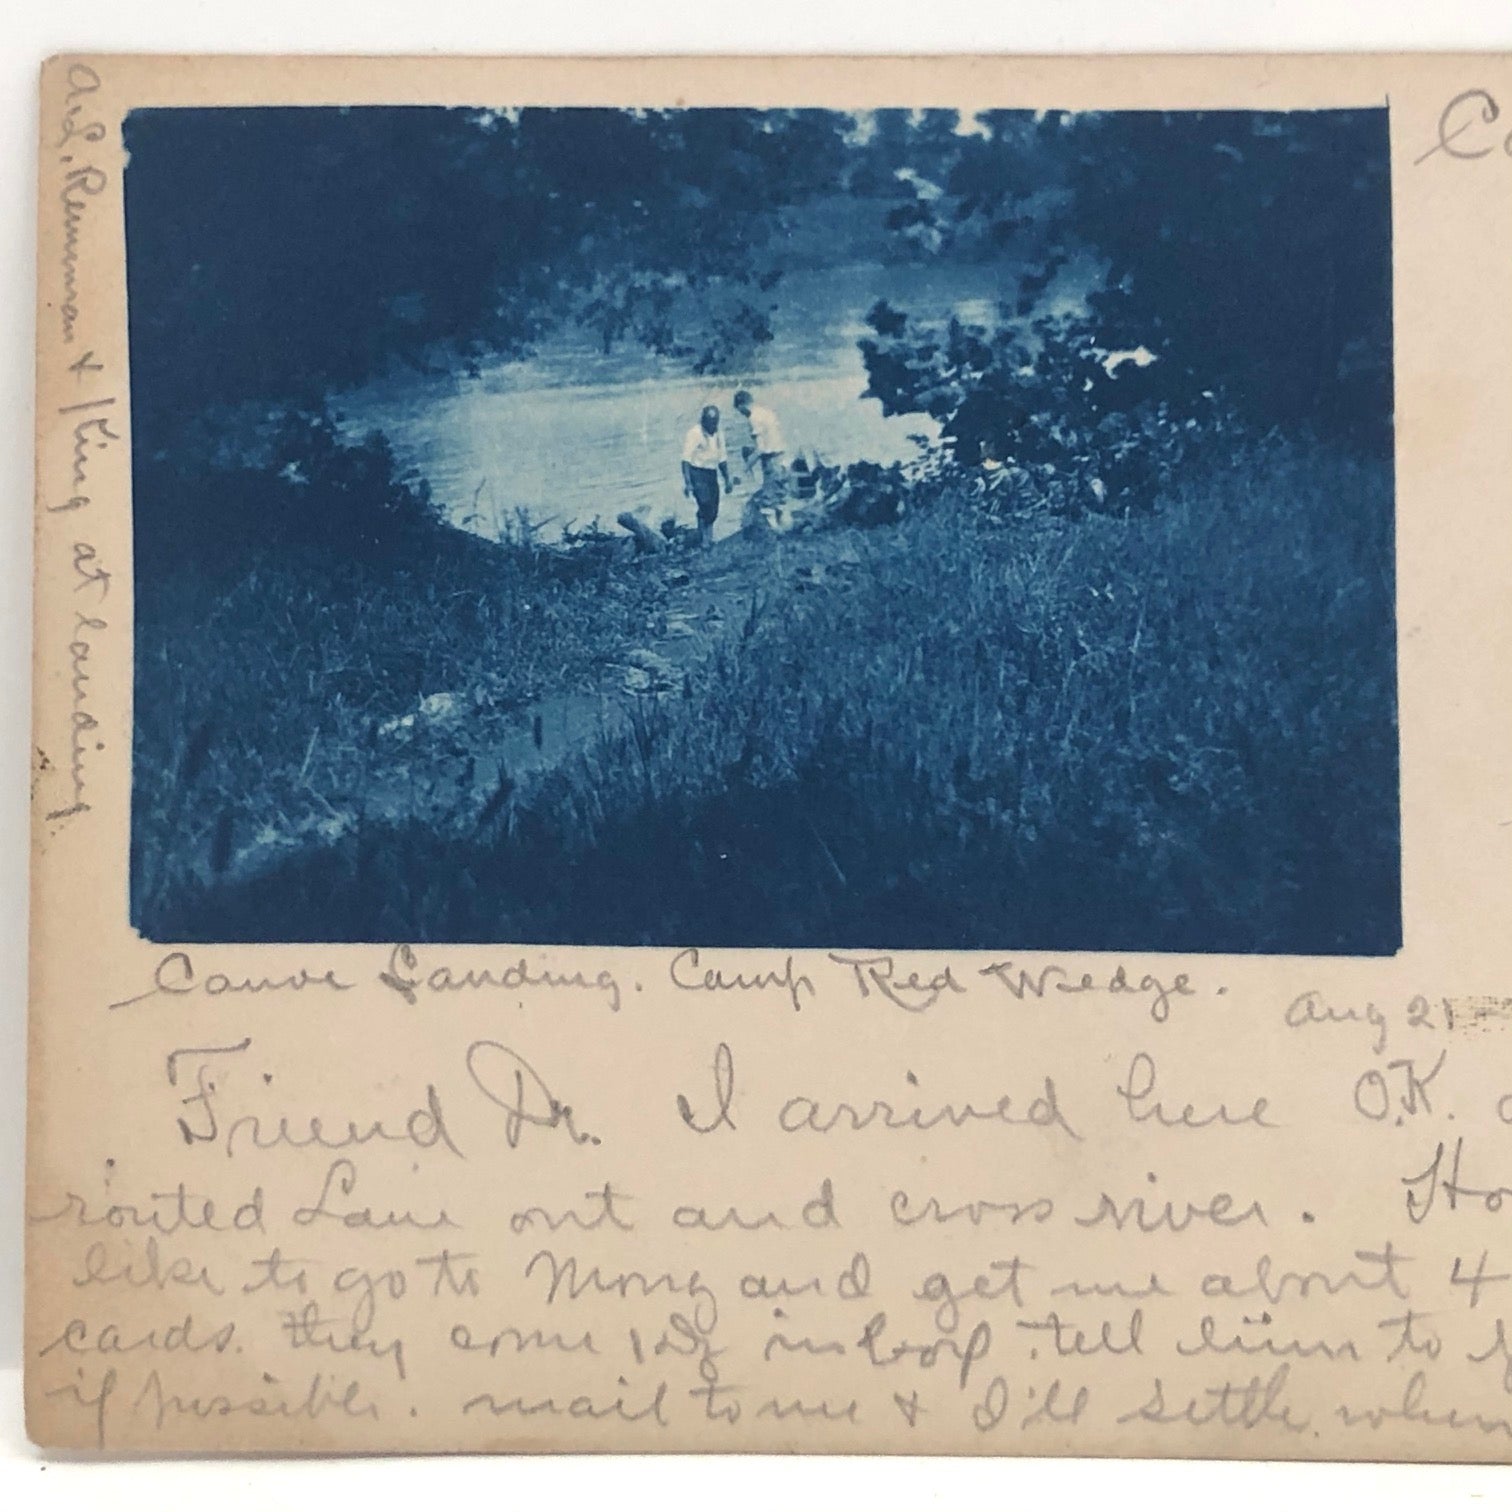 A.L. Rennman & King at landing.
Canoe Landing. Camp Red Wedge.
Aug 21
Friend Dr. I arrived here O.K.
routed Lane out and cross river. Ho
like to go to and get me about 4
cards. they come 1 Dz in box. tell him to
if possible. mail to me & I'll settle when